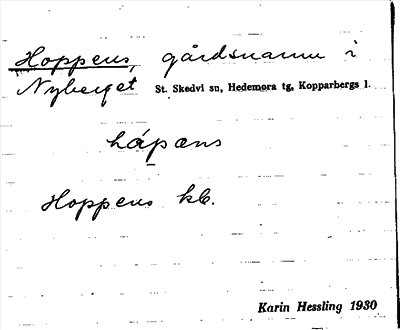 Hoppens, gårdsnamn i
Nyberget St. Skedvi sn, Hedemora tg, Kopparbergs l.
håpæns
Hoppens kb.
Karin Hessling 1930